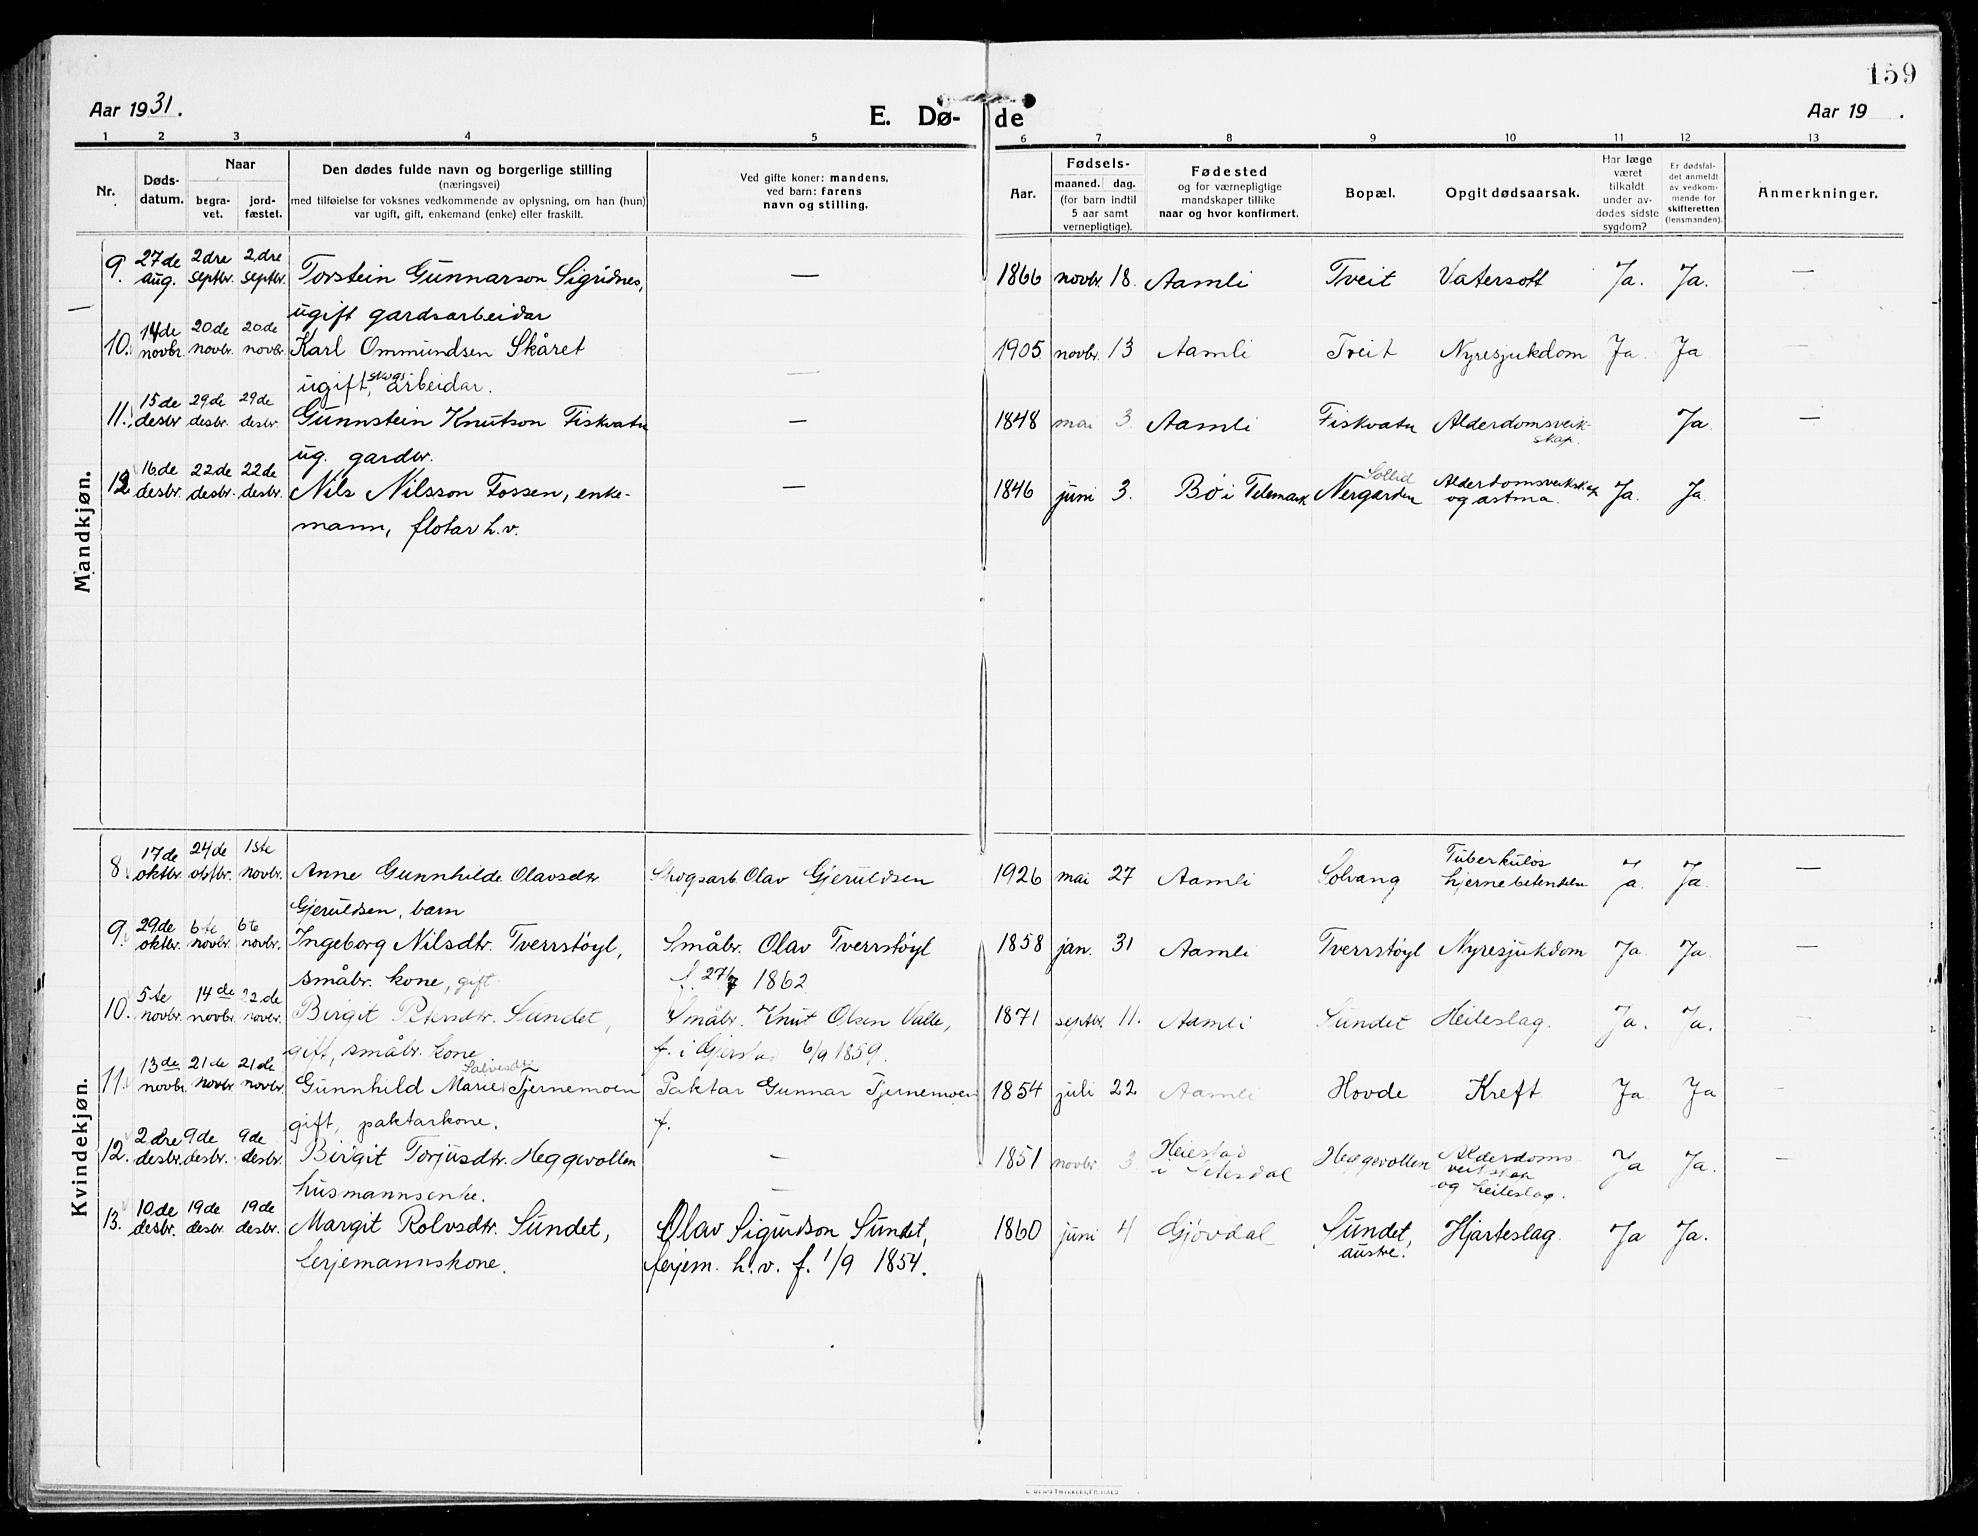 159
Aar 1931.
E. Dø-
de
Aar 19 .
1 2 3 4 5 6 7 8 9 10 11 12 13
Nr.
Døds-
datum.
Naar
begra-
vet.
jord-
fæstet.
Den dødes fulde navn og borgerlige stilling
(næringsvei)
med tilføielse for voksnes vedkommende av oplysning, om han (hun)
var ugift, gift, enkemand (enke) eller fraskilt.
Ved gifte koner: mandens,
ved barn: farens
navn og stilling.
Aar.
Fødsels-
maaned. dag.
(for barn indtil
5 aar samt
vernepligtige).
Fødested
og for værnepligtige
mandskaper tillike
naar og hvor konfirmert.
Bopæl.
Opgit dødsaarsak.
Har læge
været
tilkaldt
under av-
dødes sidste
sygdom?
Er dødsfal-
det anmeldt
av vedkom-
mende for
skifteretten
(lensmanden).
Anmerkninger.
Mandkjøn.
9. 27de aug. 2dre septbr. 2dre septbr. Torstein Gunnarson Sigridnes, — 1866 novbr. 18. Aamli Tveit Vatersott Ja. Ja. —
ugift gardsarbeidar
10. 14de novbr. 20de novbr. 20de novbr. Karl Ommundsen Skåret — 1905 novbr. 13 Aamli Tveit Nyresjukdom Ja. Ja —
ugift, skogsarbeidar.
11. 15de desbr 29de desbr. 29de desbr. Gunnstein Knutson Fiskvatn — 1848 mai 3. Aamli Fiskvatn Alderdomsveik- Ja. —
skap.
ug. gardbr.
12. 16de desbr. 22de desbr. 22de desbr. Nils Nilsson Fossen, enke- — 1846 juni 3. Bø i Telemark Sollid Nergarden Alderdomsveikskap Ja. Ja.
og astma.
mann, flotar h.v.
Kvindekjøn.
8. 17de oktbr. 24de oktbr. 1ste novbr. Anne Gunnhilde Olavsdtr Skogsarb. Olav Gjeruldsen 1926 mai 27 Aamli Solvang Tuberkuløs Ja. Ja. —
hjernebetendelse
Gjeruldsen, barn
9. 29de oktbr. 6te novbr. 6te novbr. Ingeborg Nilsdtr. Tverrstøyl, Småbr. Olav Tverrstøyl 1858 jan. 31 Aamli Tverrstøyl Nyresjukdom Ja. Ja. —
småbr. kone, gift. f. 27/7 1862
10. 5te novbr. 14de novbr. 22de novbr. Birgit Petersdtr. Sundet, Småbr. Knut Olsen Valle, 1871 septbr. 11. Aamli Sundet Heileslag. Ja. Ja.
gift, småbr. kone f. i Gjerstad 6/9 1859.
11. 13de novbr. 21de novbr. 21de novbr. Gunnhild Marie Salvesdtr Tjernemoen Paktar Gunnar Tjernemoen 1854 juli 22 Aamli Hovde Kreft Ja Ja
gift, paktarkone. f.
12. 2dre desbr. 9de desbr. 9de desbr. Birgit Torjusdtr. Heggevollen — 1851 novbr. 3. Heiestad Heggevollen Alderdoms- Ja Ja. —
i Setesdal veikskap
og heileslag.
husmannsenke. —
13. 10de desbr. 19de desbr. 19de desbr. Margit Rolvsdtr. Sundet, Olav Sigurdson Sundet, 1860 juni 4 Gjøvdal Sundet, Hjarteslag. Ja Ja.
austre.
ferjemannskone. ferjem. h.v. f. 1/9 1854.